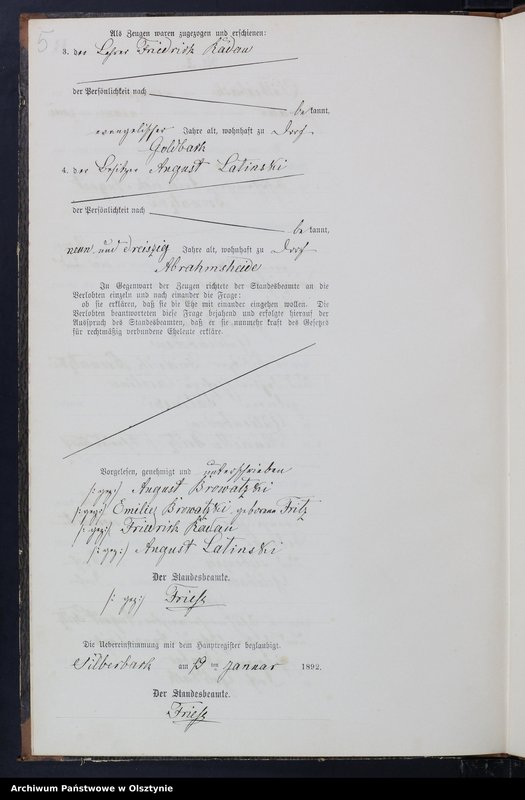 5
Als Zeugen waren zugezogen und erschienen:
3. der Lehrer Friedrich Radau
der Persönlichkeit nach
be kannt,
Jahre alt, wohnhaft zu Dorf
Goldbach
4. der Besitzer August Latinski
der Persönlichkeit nach
be kannt,
neun und dreiszig Jahre alt, wohnhaft zu Dorf
Abrahmsheide
In Gegenwart der Zeugen richtete der Standesbeamte an die
Verlobten einzeln und nach einander die Frage:
ob sie erklären, daß sie die Ehe mit einander eingehen wollen. Die
Verlobten beantworteten diese Frage bejahend und erfolgte hierauf der
Ausspruch des Standesbeamten, daß er sie nunmehr kraft des Gesetzes
für rechtmäßig verbundene Eheleute erkläre.
Vorgelesen, genehmigt und unterschrieben
/: gez:/ August Browatzki
/: gez:/ Emilie Browatzki geborene Fritz
/: gez:/ Friedrich Radau
/: gez:/ August Latinski
Der Standesbeamte.
/: gez:/ Friese
Die Uebereinstimmung mit dem Hauptregister beglaubigt.
Silberbach am ten Januar 1892.
Der Standesbeamte.
Friese
Archiwum Państwowe w Olsztynie